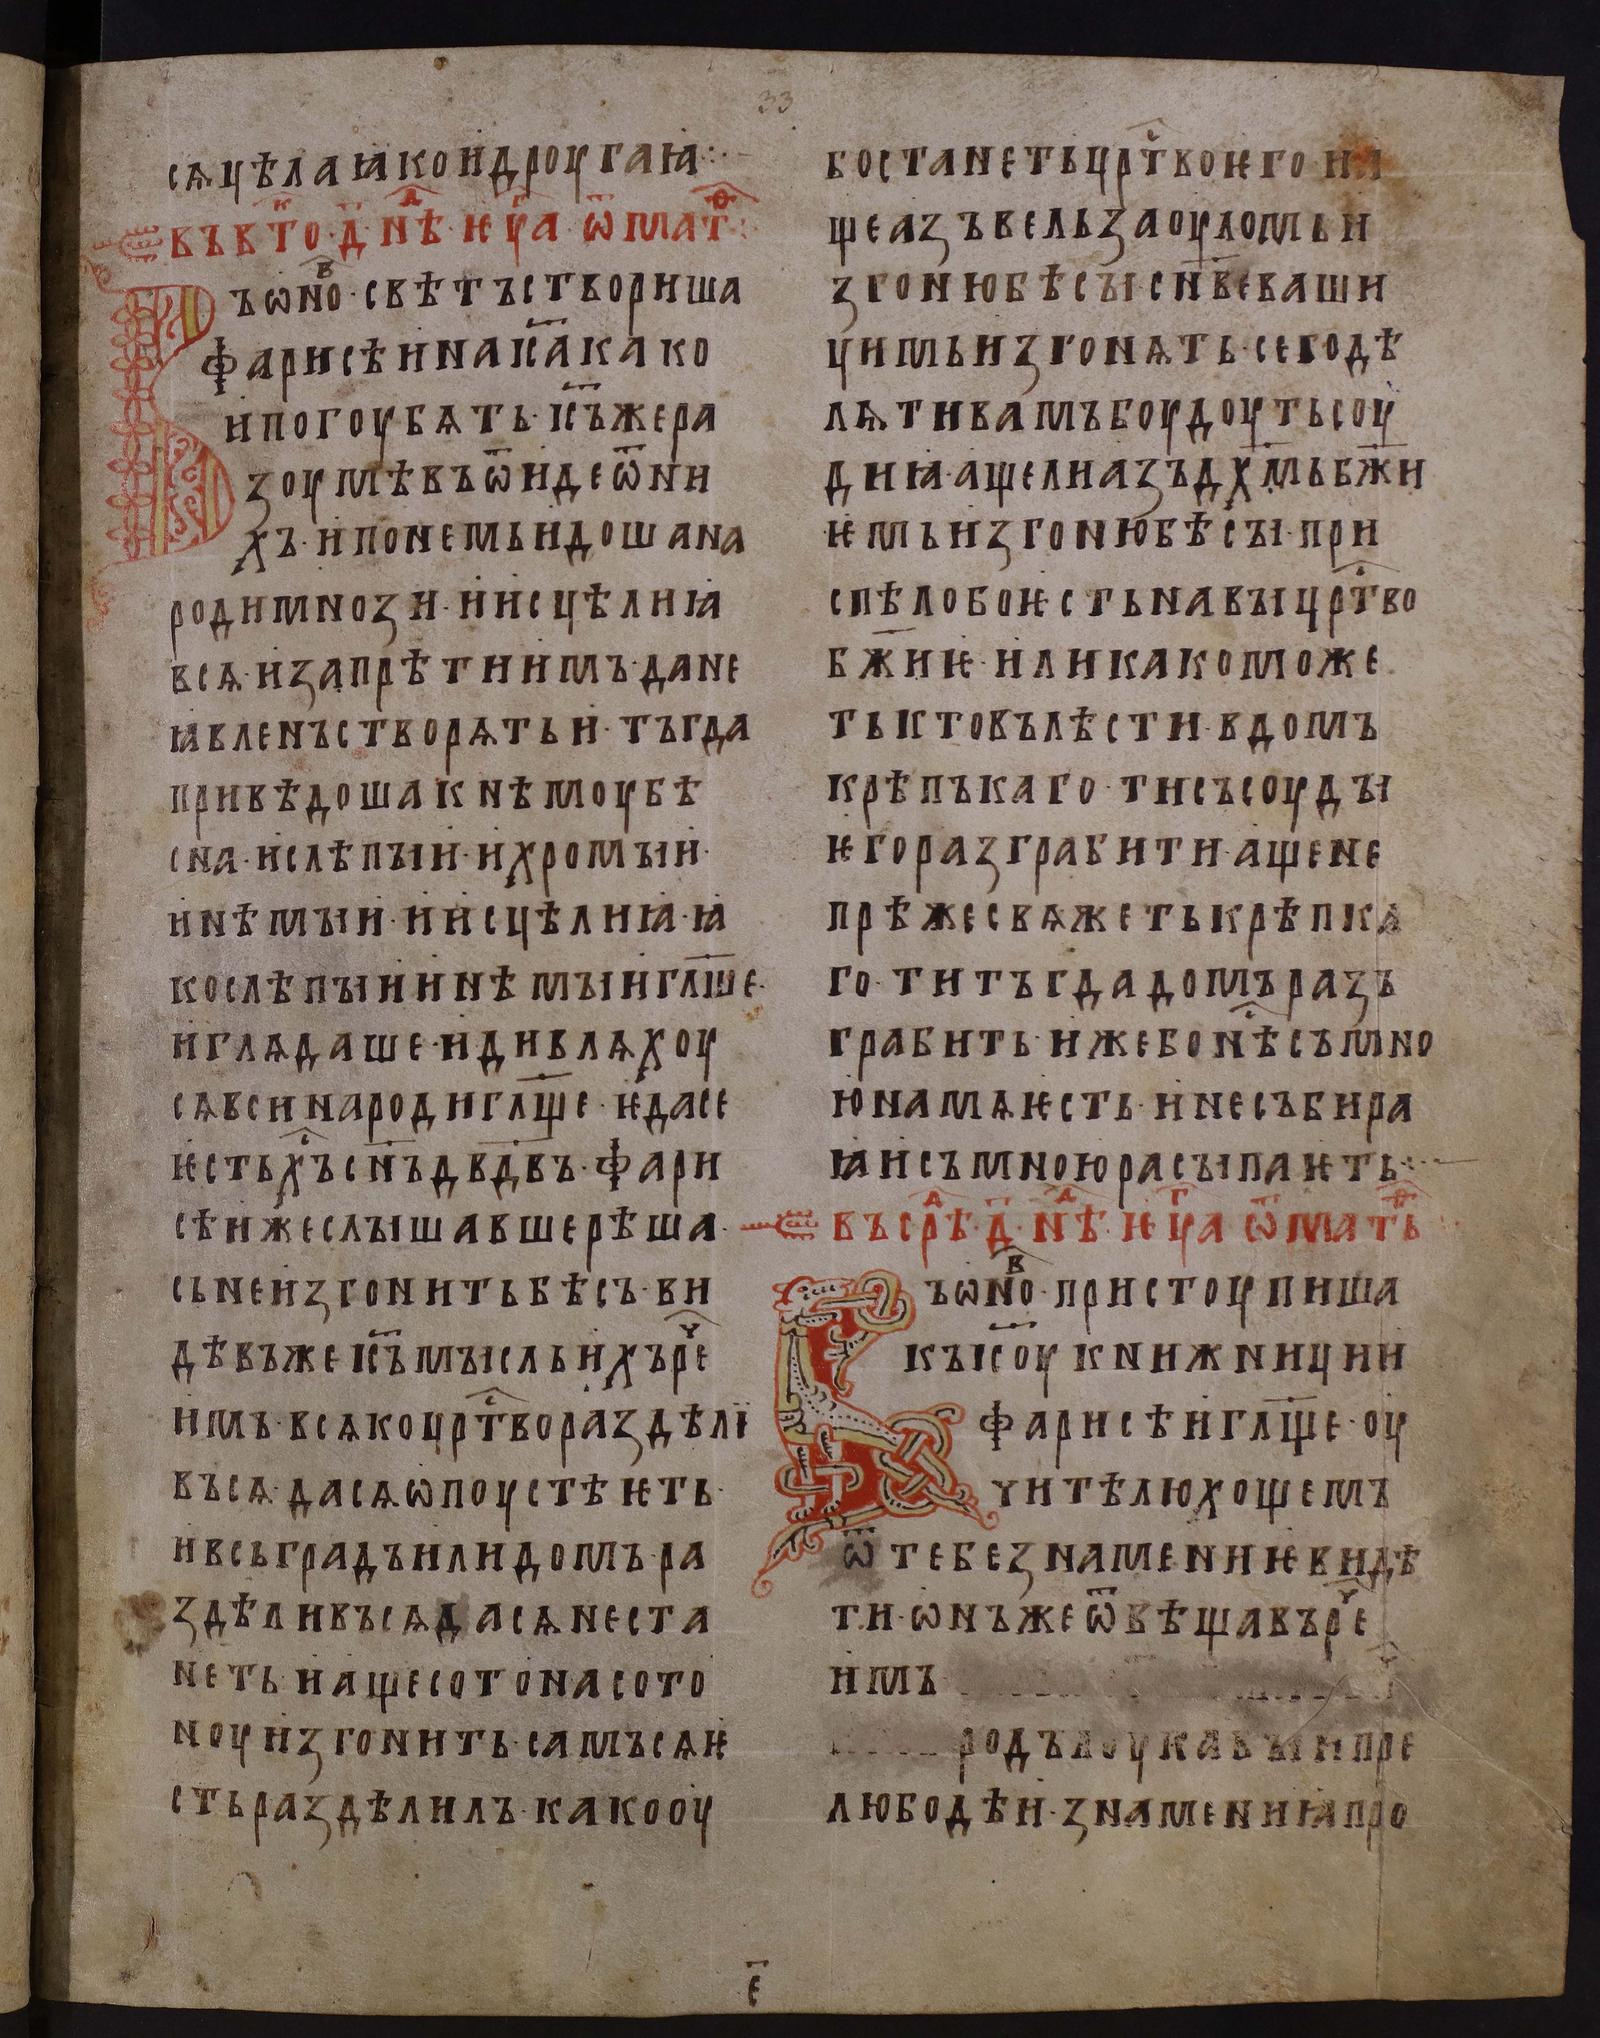 33
сѧцѣлаꙗкоидроугаꙗ:·
въвто·д҃·нѣ·ѥѵⷢ҇а·ѿмаⷴ҇т:
ъѡноⷡ·свѣтъствориша
фарисѣинаıс҃акако
ипогоубѧть·ıс҃ъжера
зоумѣвъѿидеѿни
хъ·ипонемьидошана
родимнози·иисцѣлиꙗ
всѧ·изапрѣтиимъ·дане
ꙗвленъстворѧтьи·тъгда
привѣдошакнѣмоубѣ
сна·ислѣпꙑи·ихромꙑи·
инѣмꙑи·иисцѣлиꙗ·ꙗ
кослѣпꙑиинѣмꙑигл҃ше·
иглѧдаше·идивлѧхоу
сѧвсинародигл҃ще·ѥдасе
ѥстьхⷭ҇ъсн҃ъдв҃двъ·фари
сѣижеслꙑшавшерѣша·
сьнеизгонитьбѣсъ·ви
дѣвъжеıс҃ъмꙑсльихърⷱ҇е
имъ·всѧкоцрⷭ҇твораздѣлї
въсѧ·дасѧѡпоустѣѥть·
ивсьградъилидомъ·ра
здѣливъсѧдасѧнеста
неть·иащесотонасото
ноуизгонить·самъсѧѥ
стьраздѣлилъ·какооу
бостанетьцрⷭ҇твоѥго·иı
щеазъвельзаоуломьи
згонюбѣсꙑ·сн҃веваши
цимьизгонѧть·сегодѣ
лѧтивамъбоудоутьсоу
диꙗ·ащелиазъдх҃мьбж҃и
ѥмьизгонюбѣсꙑ·при
спѣлобоѥстьнавꙑцрⷭ҇тво
бж҃иѥ·иликакоможе
тьктовълѣсти·вдомъ
крѣпъкаго·тисъсоудꙑ
ѥгоразграбити·ащене
прѣжесвѧжетькрѣпка
го·титъгдадомъразъ
грабить·ижебонѣⷭ҇съмно
юнамѧѥсть·инесъбира
ꙗисъмноюрасꙑпаѥть:·
въсрⷣѣ·д҃·нⷣѣ·ѥѵⷢ҇а·ѿмаⷴ҇ть
ъѡноⷡ·пристоупиша
къıс҃оукнижници
фарисѣигл҃ще·оу
чителюхощемъ
ѿтебезнамениѥвидѣ
ти·ѡнъжеѿвѣщавърⷱ҇е
имъ
родълоукавꙑипре
любодѣи·знамениꙗпро
е҃